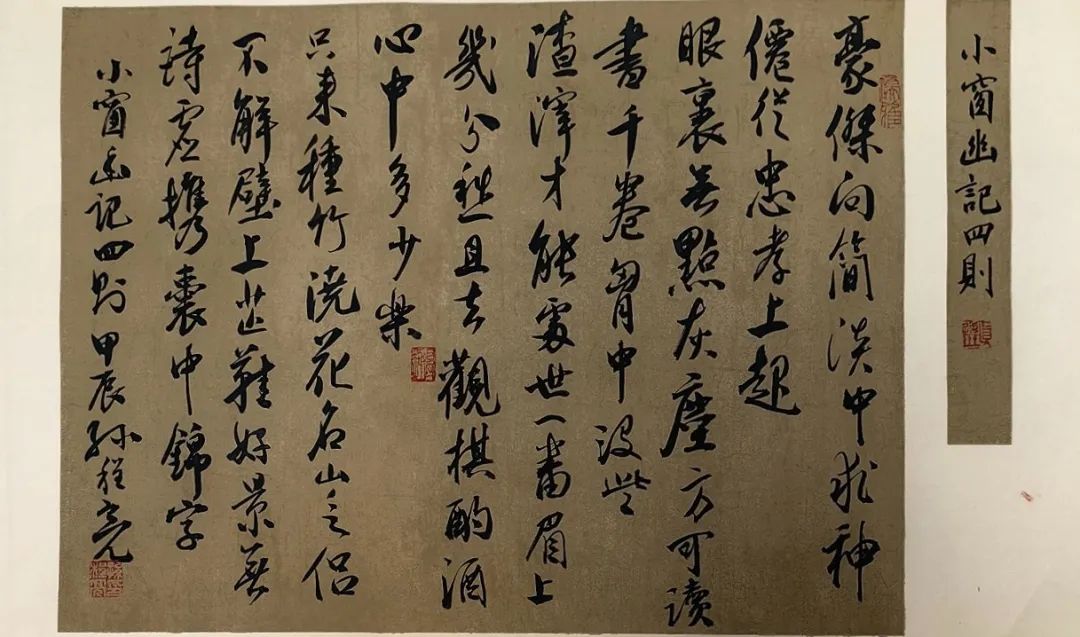 小窗幽記四則
豪傑向簡淡中求神
僊從忠孝上起
眼裏無點灰塵方可讀
書千卷胷中沒些
渣滓才能處世一番眉上
幾分愁且去觀棋酌酒
心中多少樂
只來種竹澆花名山乏侶
不解壁上芒鞋好景無
詩虛攜囊中錦字
小窗幽記四則甲辰孫程亮